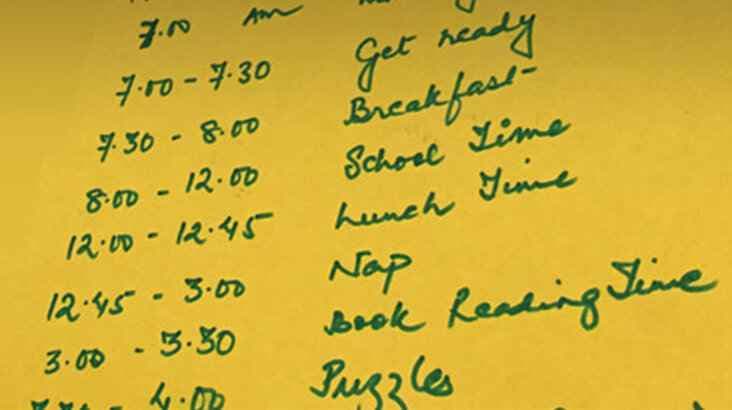 7.00 Am
7.00 - 7.30 Get ready
7.30 - 8.00 Breakfast
8.00 - 12.00 School Time
12.00 - 12.45 Lunch Time
12.45 - 3.00 Nap
3.00 - 3.30 Book Reading Time
- 4.00 Puzzles